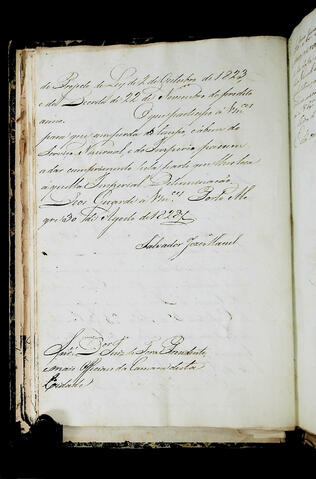 do Projeto de Ley de 2 de Outubro de 1823,
e do Decreto de 22 de Novembro do predito
anno. O que participo a Vm.ces
para que
Serviço Nacional, e do Imperio
a dar cumprimento pela parte que lhes toca
aquella Imperial Determinação.
Deos Guarde a Vm.ces Porto Ale
gre 30 de Agosto de
Salvador Jozé Maciel
Snr.es Dor. Juiz de Fora Prezidente,
e mais Officiaes da Camara desta
Cidade